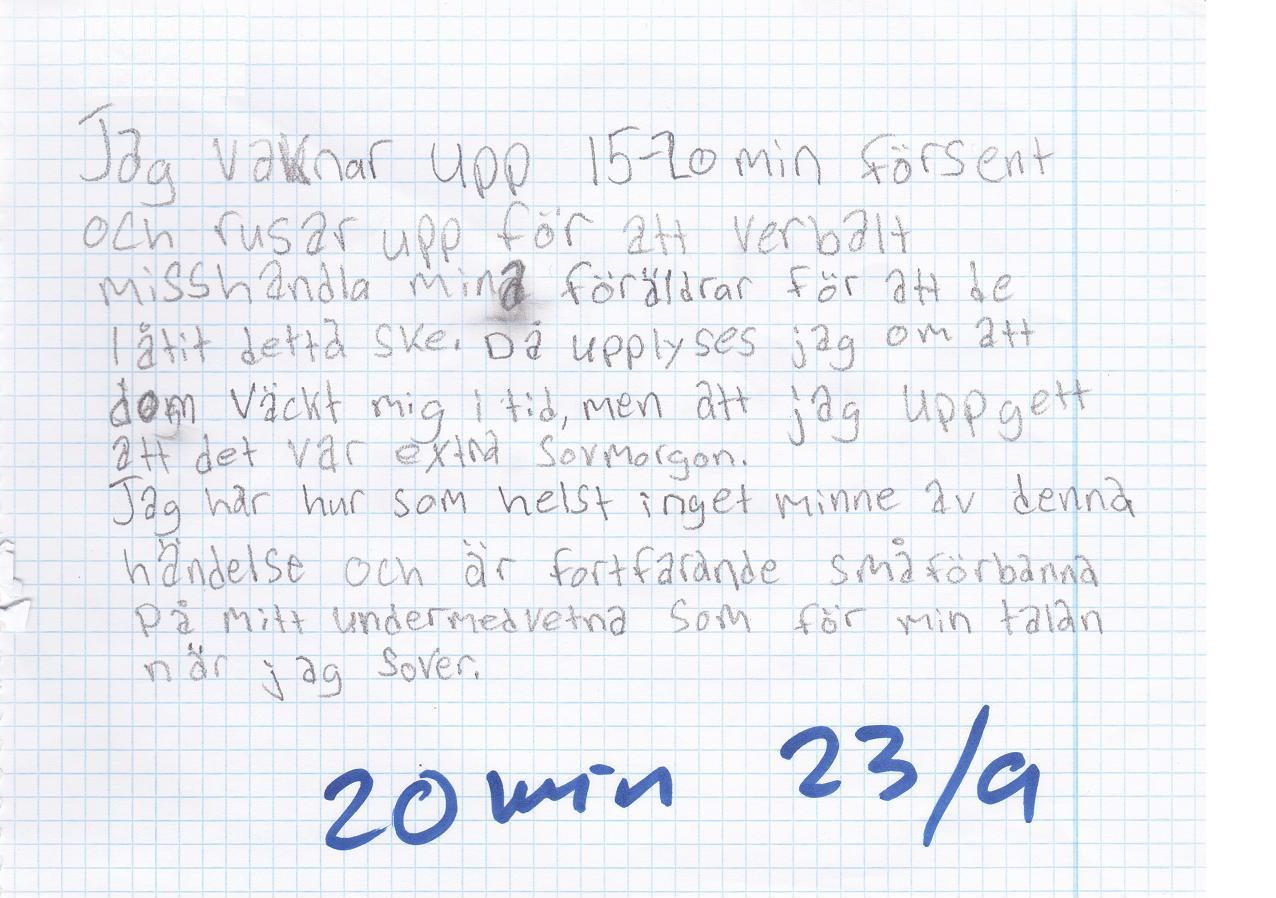 Jag vaknar upp 15-20 min försent
och rusar upp för att verbalt
misshandla mina föräldrar för att de
låtit detta ske. Då upplyses jag om att
dom väckt mig i tid, men att jag uppgett
att det var extra sovmorgon.
Jag har hur som helst inget minne av denna
händelse och är fortfarande småförbanna
på mitt undermedvetna som för min talan
när jag sover.
20 min 23/9